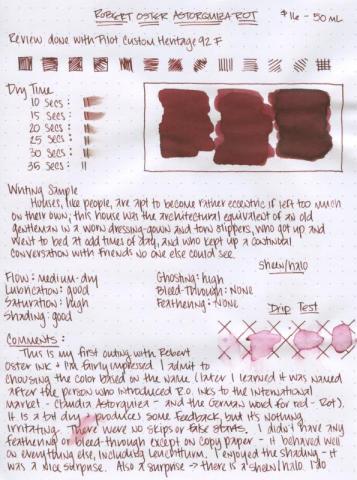 ROBERT OSTER ASTORQUIZA ROT $16 - 50 mL
Review done with Pilot Custom Heritage 92 F
Dry Time
10 Secs:
15 Secs:
20 Secs:
25 Secs:
30 Secs:
35 Secs:
Writing Sample
Houses, like people, are apt to become rather eccentric if left too much
on their own; this house was the architectural equivalent of an old
gentleman in a worn dressing-gown and torn slippers, who got up and
went to bed at odd times of day, and who kept up a continual
conversation with friends no one else could see.
Sheen/halo
Flow: medium-dry
Lubrication: good
Saturation: high
Shading: good
Ghosting: high
Bleed-Through: None
Feathering: None
Drip Test
Comments:
This is my first outing with Robert
Oster ink + I'm fairly impressed. I admit to
choosing the color based on the name (later I learned it was named
after the person who introduced R.O. inks to the International
market - Claudia Astorquiza - and the German word for red - Rot).
It is a bit dry + produces some feedback, but it's nothing
irritating. There were no skips or false starts. I didn't have any
feathering or bleed-through except on copy paper - it behaved well
on everything else, including Leuchtturm. I enjoyed the shading - it
was a nice surprise. Also a surprise → there is a sheen/halo. I do